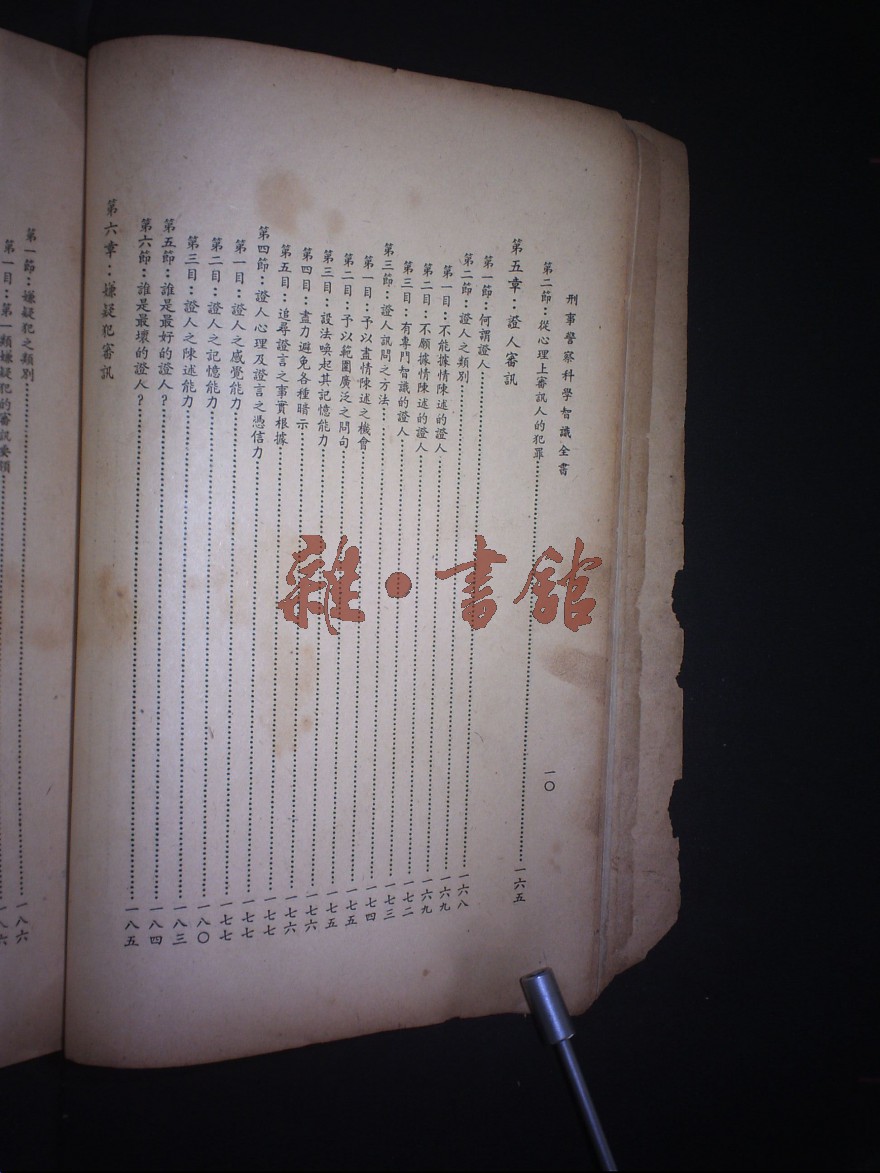 刑事警察科學智識全書 一〇
第二節：從心理上審訊人的犯罪……一六五
第五章：證人審訊
第一節：何謂證人……一六八
第二節：證人之類別……一六九
第一目：不能據情陳述的證人……一六九
第二目：不願據情陳述的證人……一七二
第三目：有專門智識的證人……一七三
第三節：證人訊問之方法……一七四
第一目：予以盡情陳述之機會……一七五
第二目：予以範圍廣泛之問句……一七五
第三目：設法喚起其記憶能力……一七六
第四目：盡力避免各種暗示……一七六
第五目：追尋證言之事實根據……一七七
第四節：證人心理及證言之憑信力……一七七
第一目：證人之感覺能力……一七七
第二目：證人之記憶能力……一八〇
第三目：證人之陳述能力……一八三
第五節：誰是最好的證人？……一八四
第六節：誰是最壞的證人？……一八五
第六章：嫌疑犯審訊
第一節：嫌疑犯之類別……一八六
第一目：第一類嫌疑犯的審訊要領……一八六
雜•書館